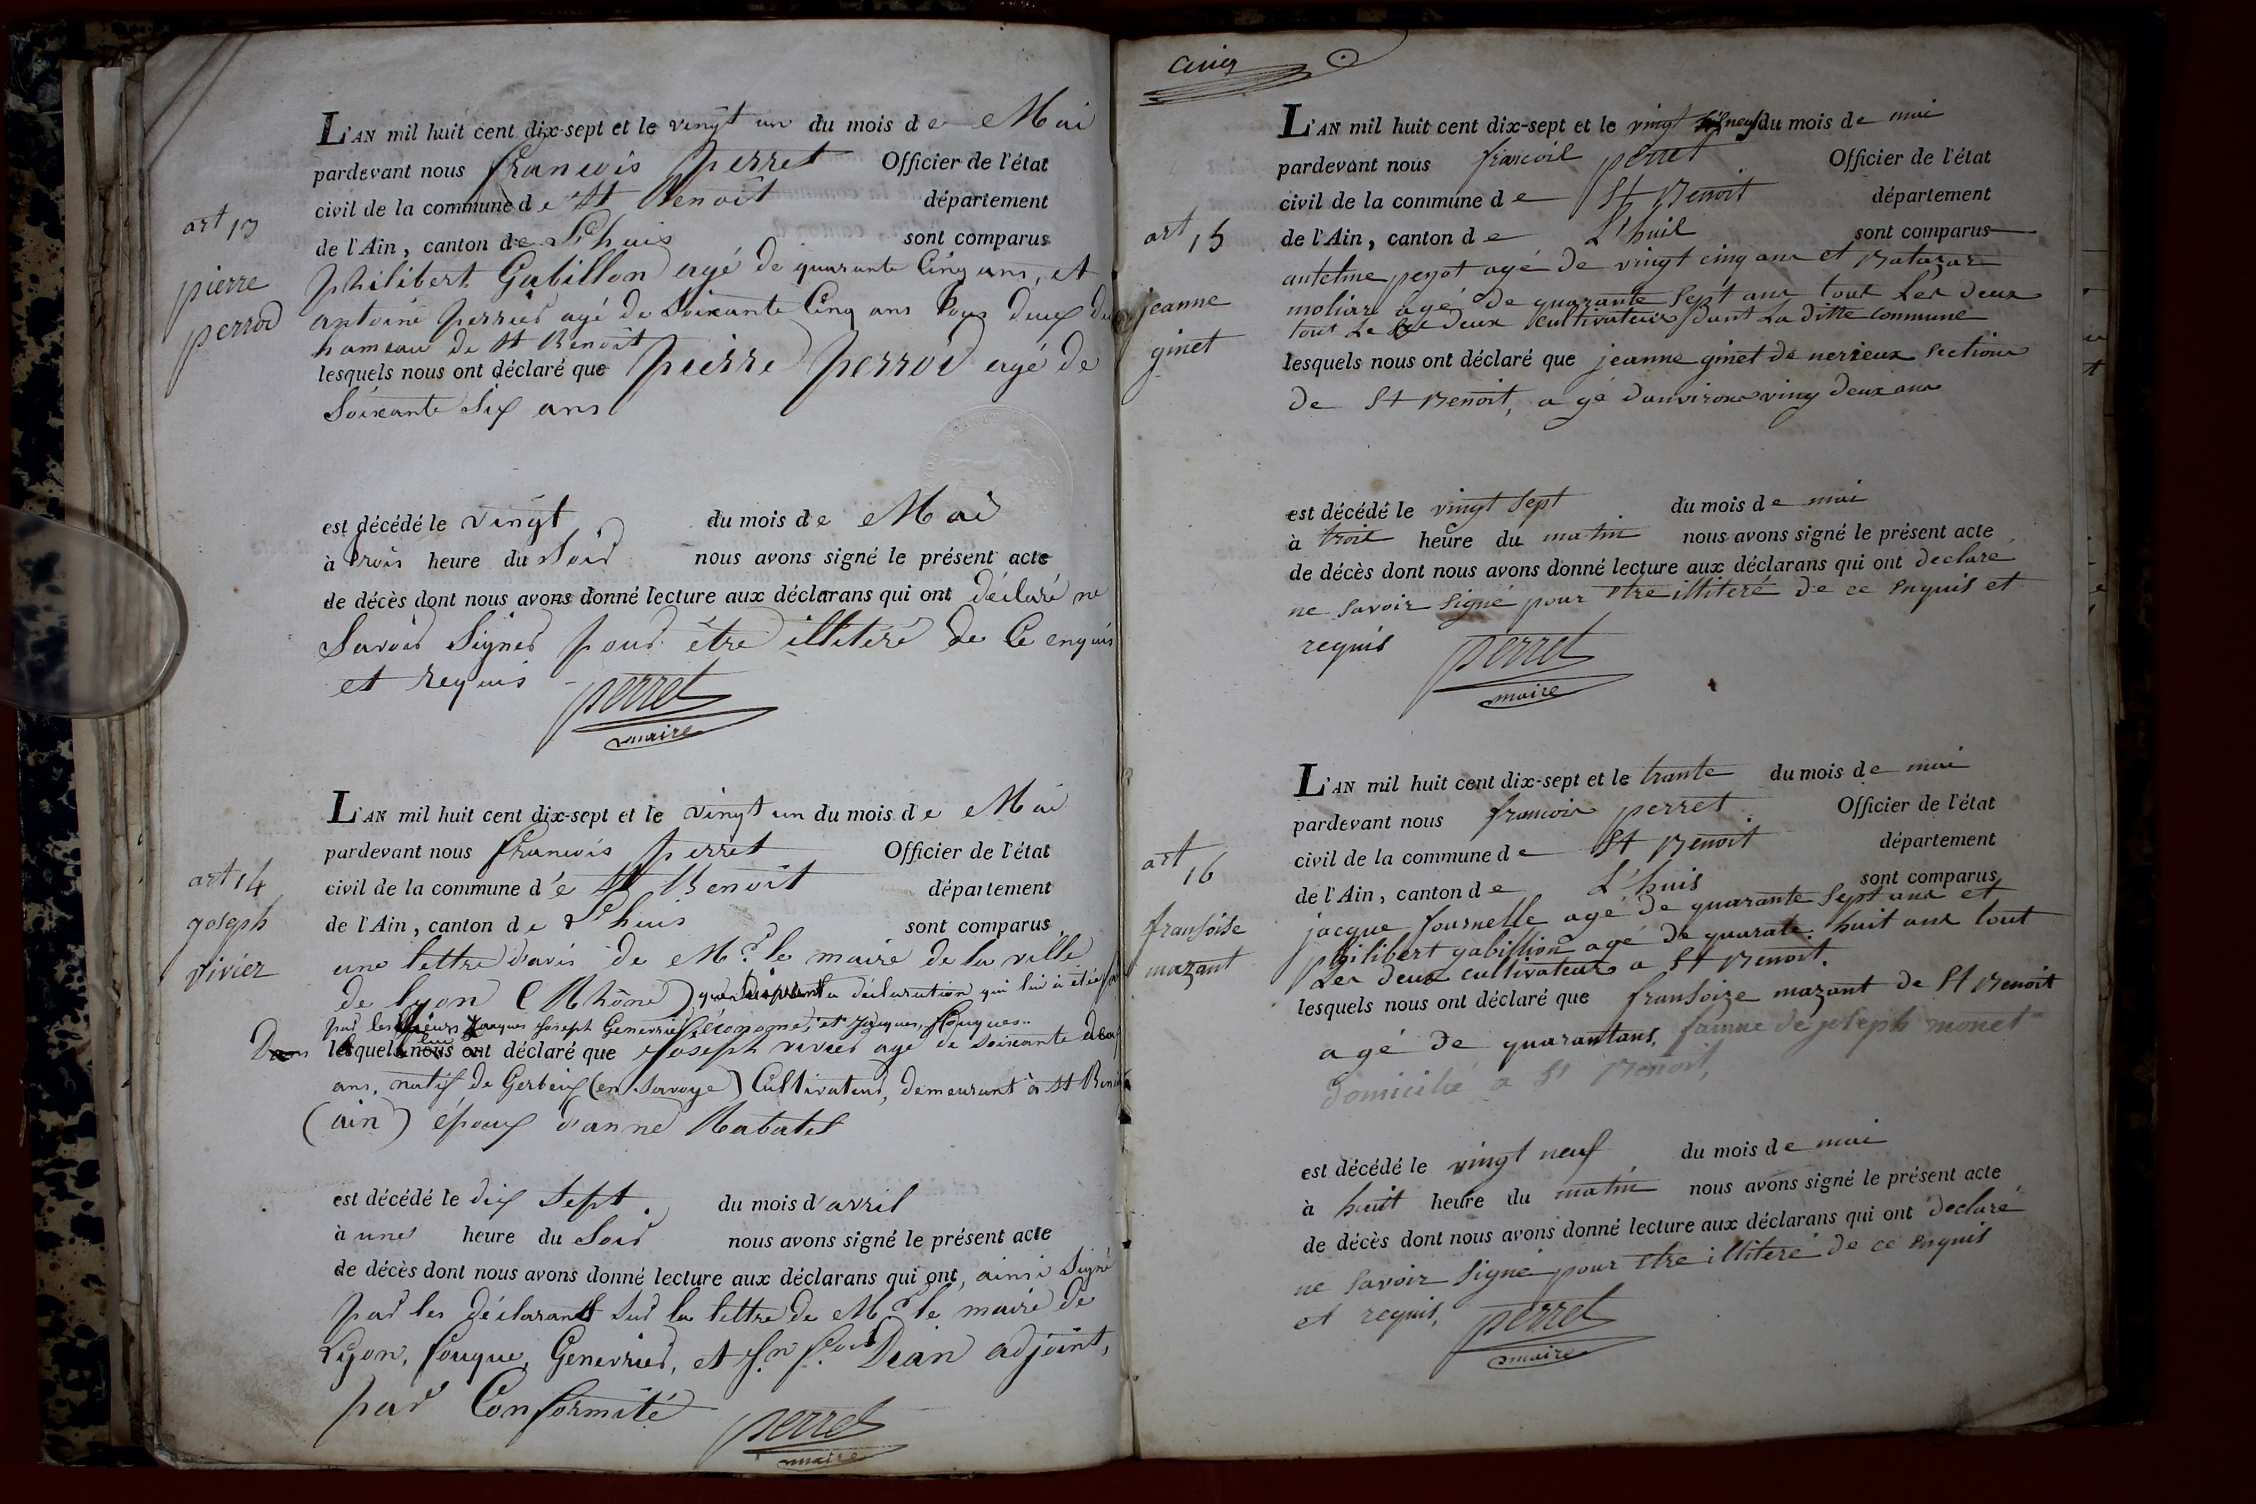 art 13
pierre
perrod
L'AN mil huit cent dix-sept et le vingt un du mois de Mai
pardevant nous francois perret Officier de l'état
civil de la commune de St Benoit département
de l'Ain, canton de Lhuis sont comparus
philibert Gabillon agé de quarante Cinq ans, et
antoine perrier agé de Soixante Cinq ans tous deux du
hameau de St Benoit
lesquels nous ont déclaré que pierre perrod agé de
Soixante Six ans
est décédé le vingt du mois de Mai
à trois heure du Soir nous avons signé le présent acte
de décès dont nous avons donné lecture aux déclarans qui ont déclaré ne
Savoir Signer pour être illiteré de Ce enquis
et requis
perret
maire
art 14
joseph
vivier
L'AN mil huit cent dix-sept et le vingt un du mois de Mai
pardevant nous francois perret Officier de l'état
civil de la commune de St Benoit département
de l'Ain, canton de Lhuis sont comparus
une lettre d'avis de Mr. le maire de la ville
de lyon (Rhône) déclaration qui lui à été
par les Sieurs Jacques Joseph Genevrier, économe, et Jacques Fouques
lesquels nous ont déclaré que Joseph vivier agé de Soixante
ans, natif de Gerbaix (en Savoye) Cultivateur, demeurant à St Benoit
(ain) époux d'anne Rabatel
est décédé le dix Sept du mois d'avril
à une heure du Soir nous avons signé le présent acte
de décès dont nous avons donné lecture aux déclarans qui ont, ainsi Signé
par les déclarants Sur la lettre de Mr le maire de
Lyon, fouque, Genevrier, et Dian adjoint,
par Conformité
perret
maire
cinq
art 15
jeanne
ginet
L'AN mil huit cent dix-sept et le vingt neuf du mois de mai
pardevant nous francois perret Officier de l'état
civil de la commune de St Benoit département
de l'Ain, canton de L'huis sont comparus
antelme peyot agé de vingt cinq ans et Batazar
moliar agé de quarante Sept ans tout Les deux
tout Le deux cultivateur dant La ditte commune
lesquels nous ont déclaré que jeanne ginet de nerieux Section
de St Benoit, agé danviron ving deux ans
est décédé le vingt Sept du mois de mai
à troit heure du matin nous avons signé le présent acte
de décès dont nous avons donné lecture aux déclarans qui ont declaré
ne Savoir Signé pour etre illiteré de ce enquis et
requis
perret
maire
art 16
fransoise
mazant
L'AN mil huit cent dix-sept et le trante du mois de mai
pardevant nous francois perret Officier de l'état
civil de la commune de St Benoit département
de l'Ain, canton de L'huis sont comparus
jacque fournelle agé de quarante Sept ans et
philibert gabillion agé de quarate huit ans tout
Les deux cultivateur a St Benoit.
lesquels nous ont déclaré que fransoize mazant de St Benoit
agé de quarantans, famme de joseph monet
domicilié a St Benoit,
est décédé le vingt neuf du mois de mai
à huit heure du matin nous avons signé le présent acte
de décès dont nous avons donné lecture aux déclarans qui ont declaré
ne Savoir Signé pour etre illiteré de ce enquis
et requis,
perret
maire